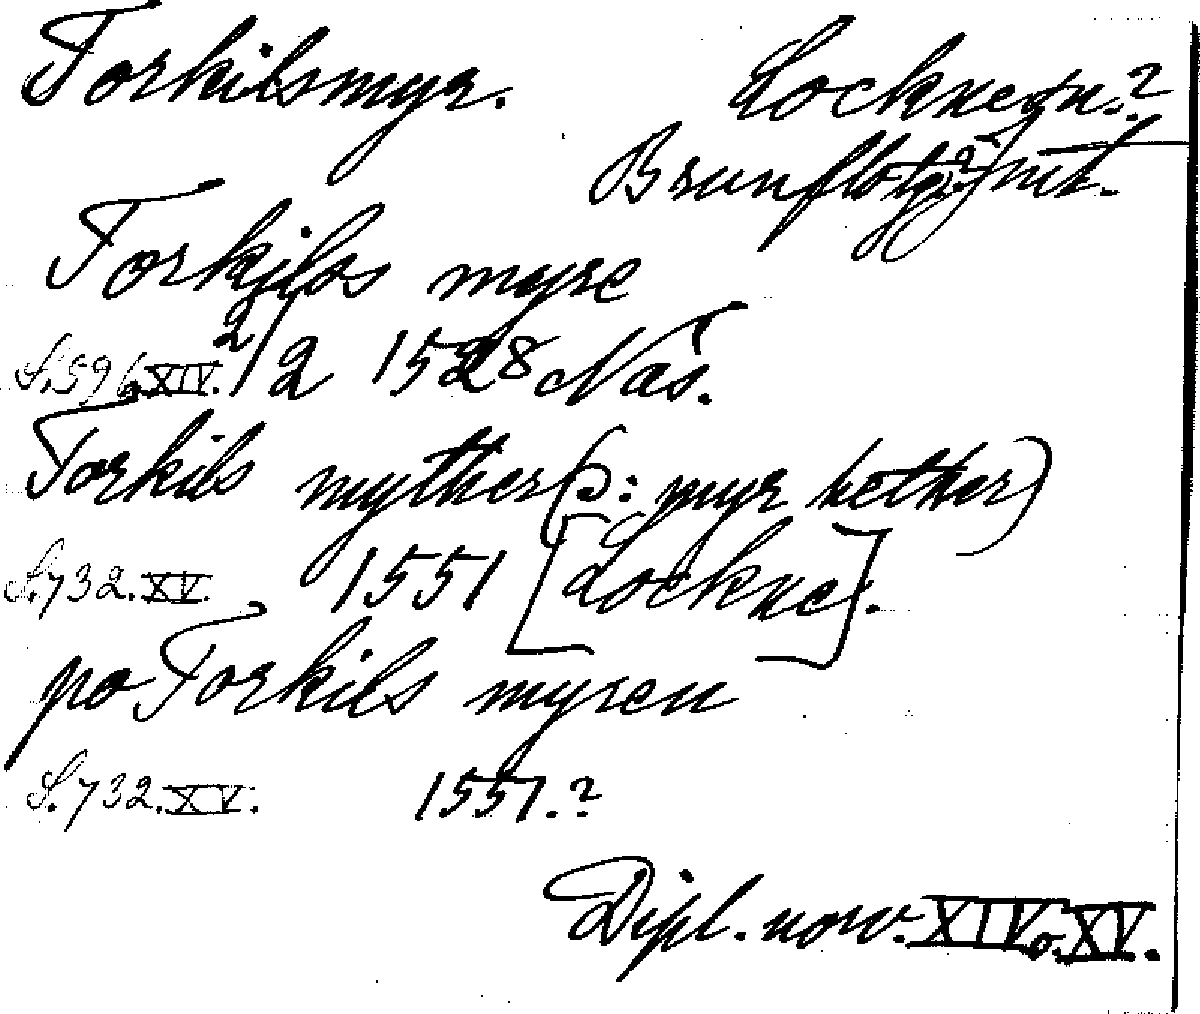 Torkilsmyr. Lockne sn.?
Brunflo tg.? Jmt.
Torkilss myre
S. 596 XIV. 2/2 1528 Näs.
Torkils myther (ɔ: myr hether)
S. 732. XV. 1551 [Lockne].
po Torkils myren
S. 732. XV. 1551.?
Dipl. norv. XIV o. XV.